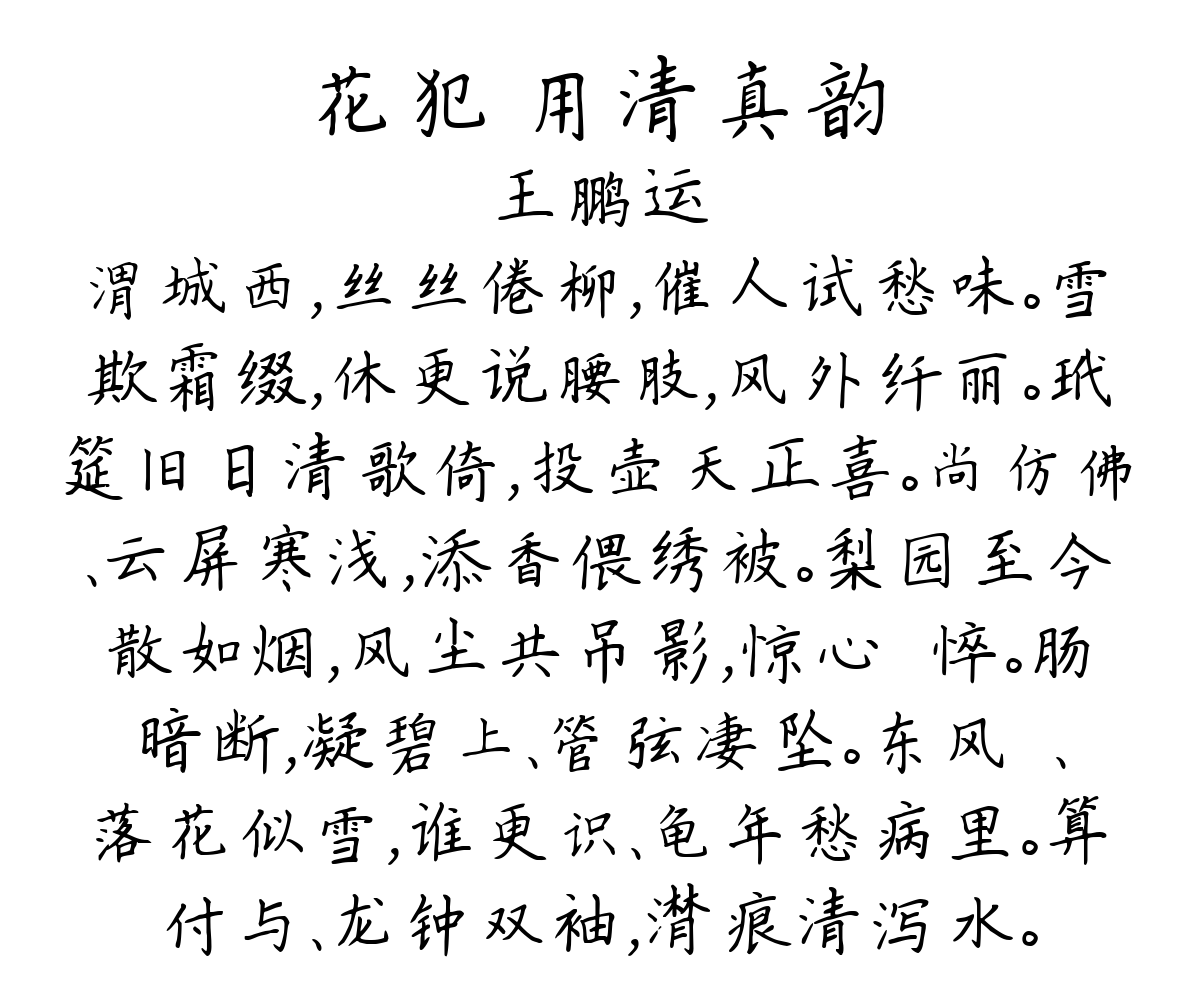 花犯 用清真韵
王鹏运
渭城西,丝丝倦柳,催人试愁味。雪
欺霜缀,休更说腰肢,风外纤丽。玳
筵旧日清歌倚,投壶天正喜。尚仿佛
、云屏寒浅,添香偎绣被。梨园至今
散如烟,风尘共吊影,惊心 悴。肠
暗断,凝碧上、管弦凄坠。东风 、
落花似雪,谁更识、龟年愁病里。算
付与、龙钟双袖,潸痕清泻水。